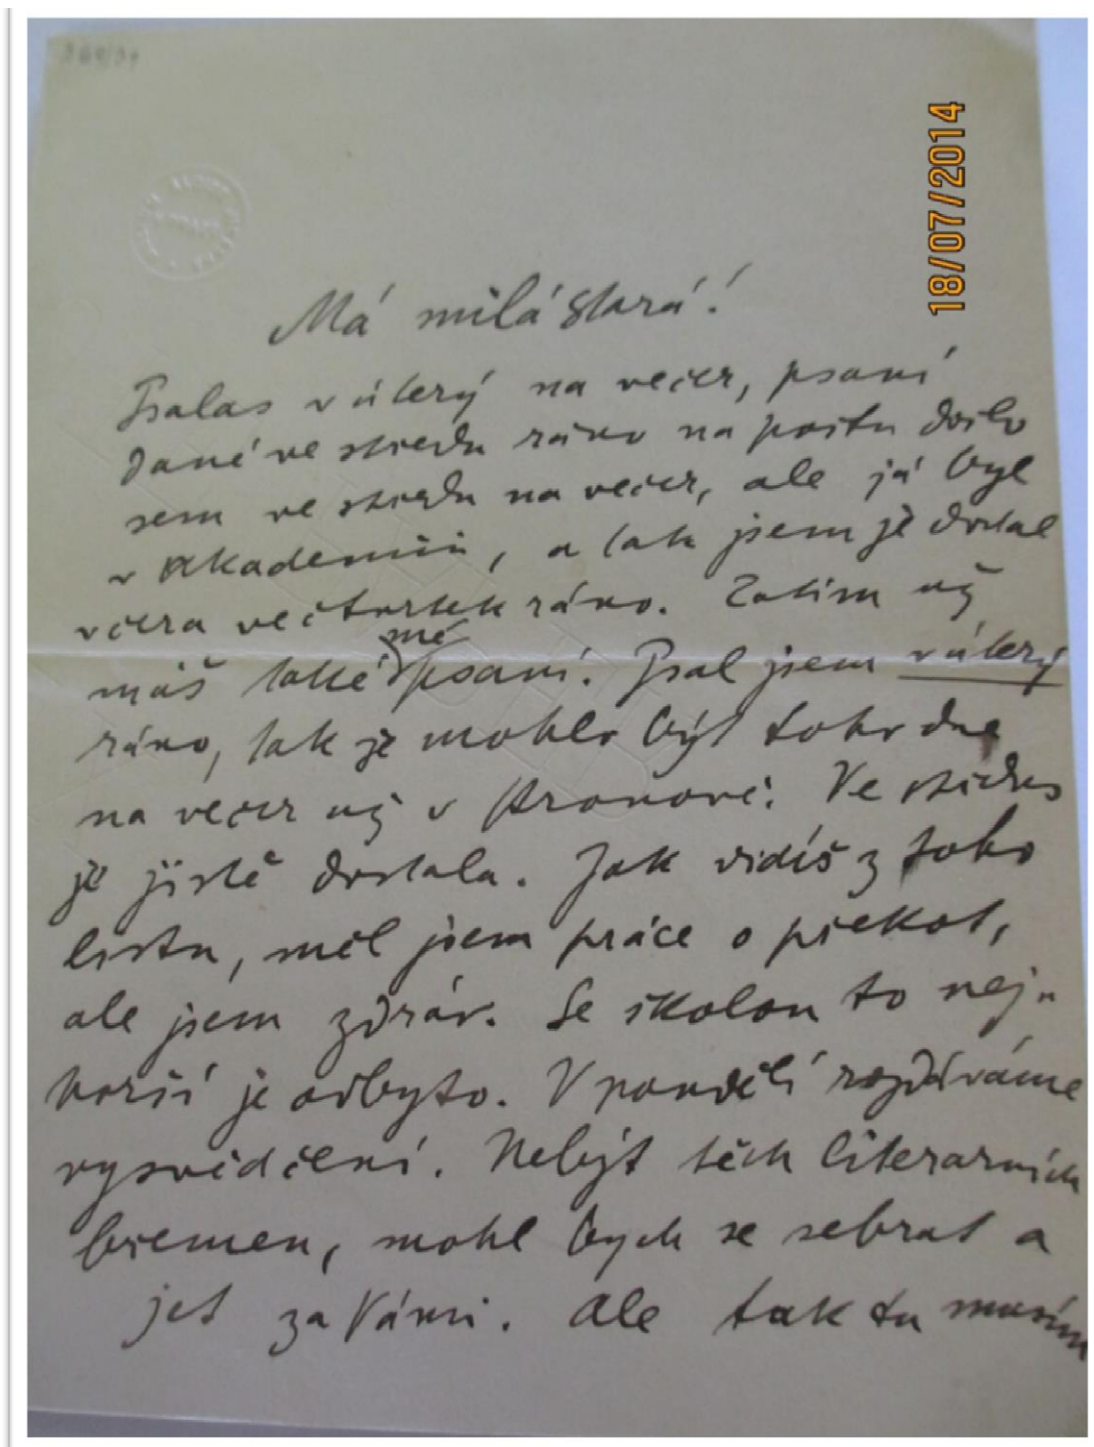 18/07/2014
Má milá stará!
Psalas v úterý na večer, psaní
dané ve středu ráno na poštu došlo
sem ve středu na večer, ale já byl
v Akademii, a tak jsem je dostal
včera ve čtvrtek ráno. Zatím už
máš také mé psaní. Psal jsem v úterý
ráno, tak je mohlo být toho dne
na večer už v Hronově. Ve středu
je jistě dostala. Jak vidíš z toho
listu, měl jsem práce o překot,
ale jsem zdráv. Se školou to nej-
horší je odbyto. V pondělí rozdáváme
vysvědčení. Nebýt těch literarních
břemen, mohl bych se sebrat a
jet za Vámi. Ale tak tu musím